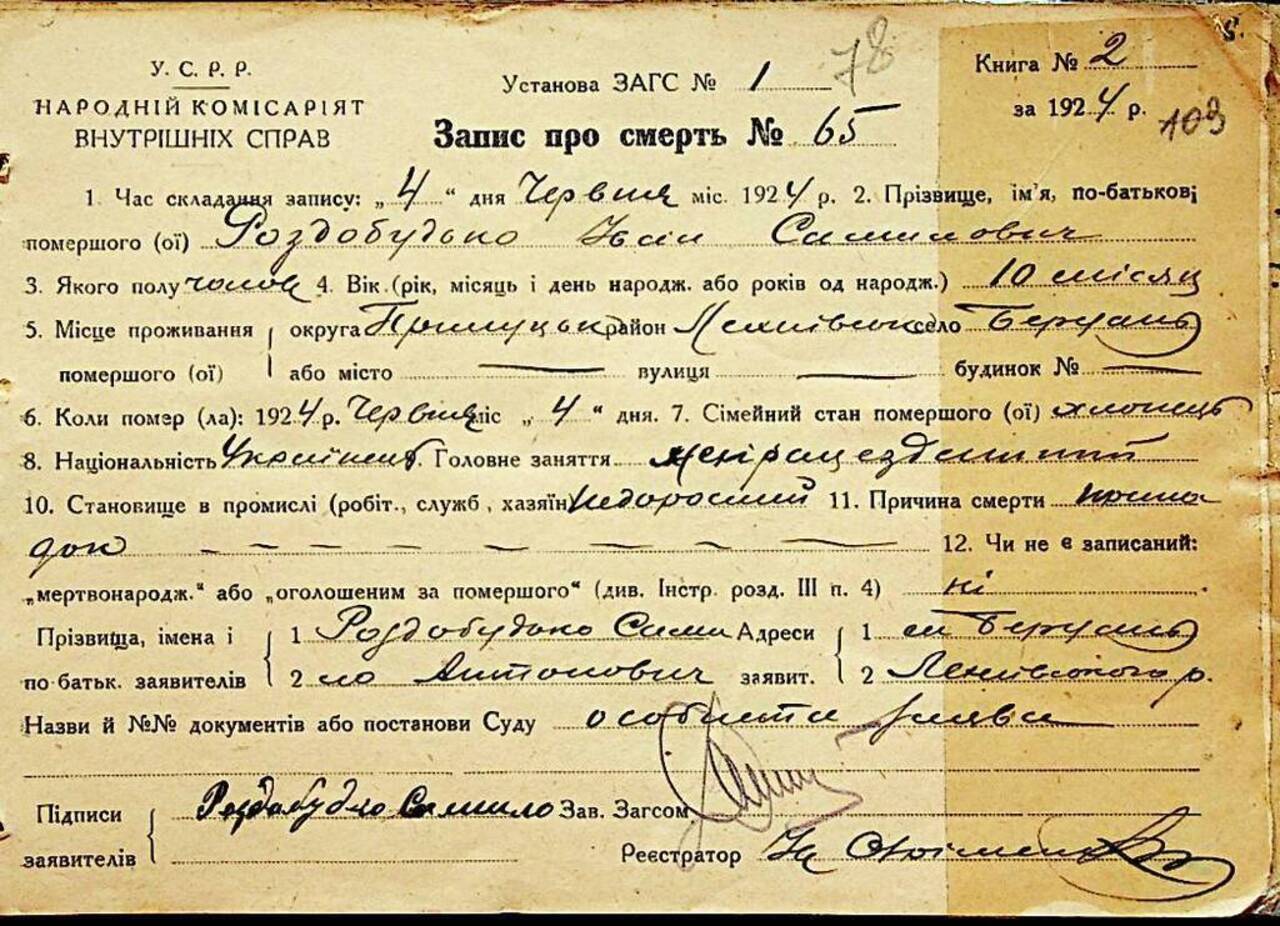 78
У. С. Р. Р.
НАРОДНІЙ КОМІСАРІЯТ
ВНУТРІШНІХ СПРАВ
Установа ЗАГС № 1
Книга № 2
за 1924 р.
103
Запис про смерть № 65
1. Час складання запису: „4“ дня Червня міс. 1924 р. 2. Прізвище, ім'я, по-батькові
помершого (ої) Роздобудько Іван Самилович
3. Якого полу чолов 4. Вік (рік, місяць і день народж. або років од народж.) 10 місяц
5. Місце проживання помершого (ої) округа Прилуцьк район Лехнівськ село Березань
або місто — вулиця — будинок № —
6. Коли помер (ла): 1924 р. Червня міс „4“ дня. 7. Сімейний стан помершого (ої) хлопець
8. Національність Українець. Головне заняття непрацездатний
10. Становище в промислі (робіт., служб, хазяїн) Недорослий 11. Причина смерти
док — — — — — — — 12. Чи не є записаний:
„мертвонародж.“ або „оголошеним за помершого“ (див. Інстр. розд. III п. 4) ні.
Прізвища, імена і по батьк. заявителів 1 Роздобудько Сами Адреси заявит. 1
2 ло Антонович 2 р.
Назви й №№ документів або постанови Суду особиста заява
Підписи заявителів Роздобудко Самило Зав. Загсом
Реєстратор